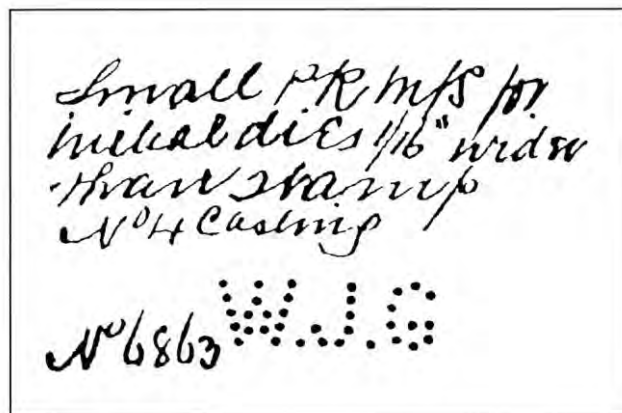 Small PR M/S for
Initial dies 1/16" wider
than stamp
No 4 Casting
No 6863 W.J.G